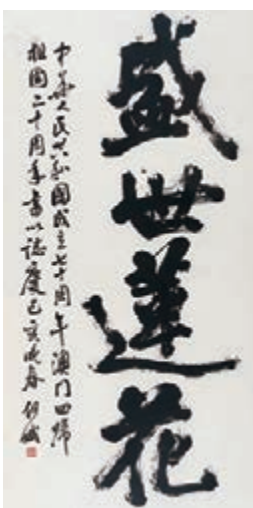 盛世蓮花
中華人民共和國成立七十周年澳门回歸
祖國二十周年書以誌慶己亥晚春